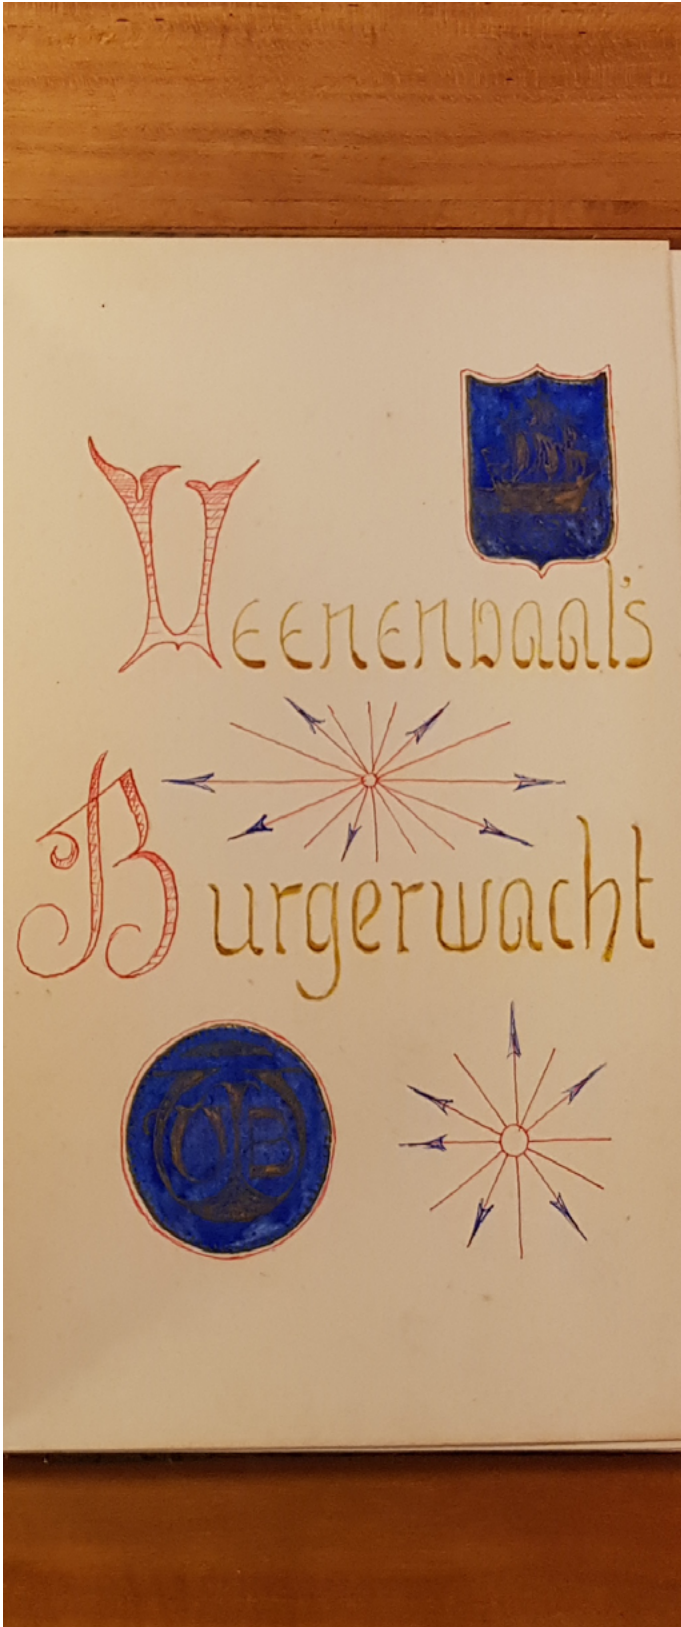 Veenendaal's
Burgerwacht